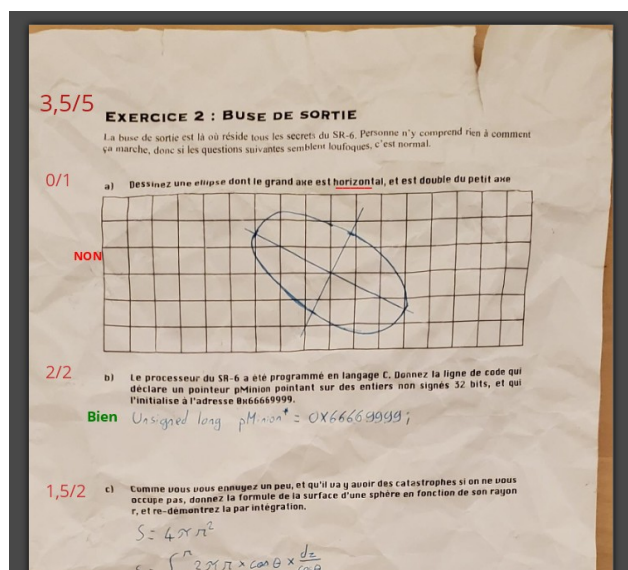 3,5/5
EXERCICE 2 : BUSE DE SORTIE
La buse de sortie est là où réside tous les secrets du SR-6. Personne n'y comprend rien à comment
ça marche, donc si les questions suivantes semblent loufoques, c'est normal.
0/1
a) Dessinez une ellipse dont le grand axe est horizontal, et est double du petit axe
NON
2/2
b) Le processeur du SR-6 a été programmé en langage C. Donnez la ligne de code qui
déclare un pointeur pMinion pointant sur des entiers non signés 32 bits, et qui
l'initialise à l'adresse 0x66669999.
Bien
Unsigned long pMinion* = 0X66669999;
1,5/2
c) Comme vous vous ennuyez un peu, et qu'il va y avoir des catastrophes si on ne vous
occupe pas, donnez la formule de la surface d'une sphère en fonction de son rayon
r, et re-démontrez la par intégration.
S = 4πr²